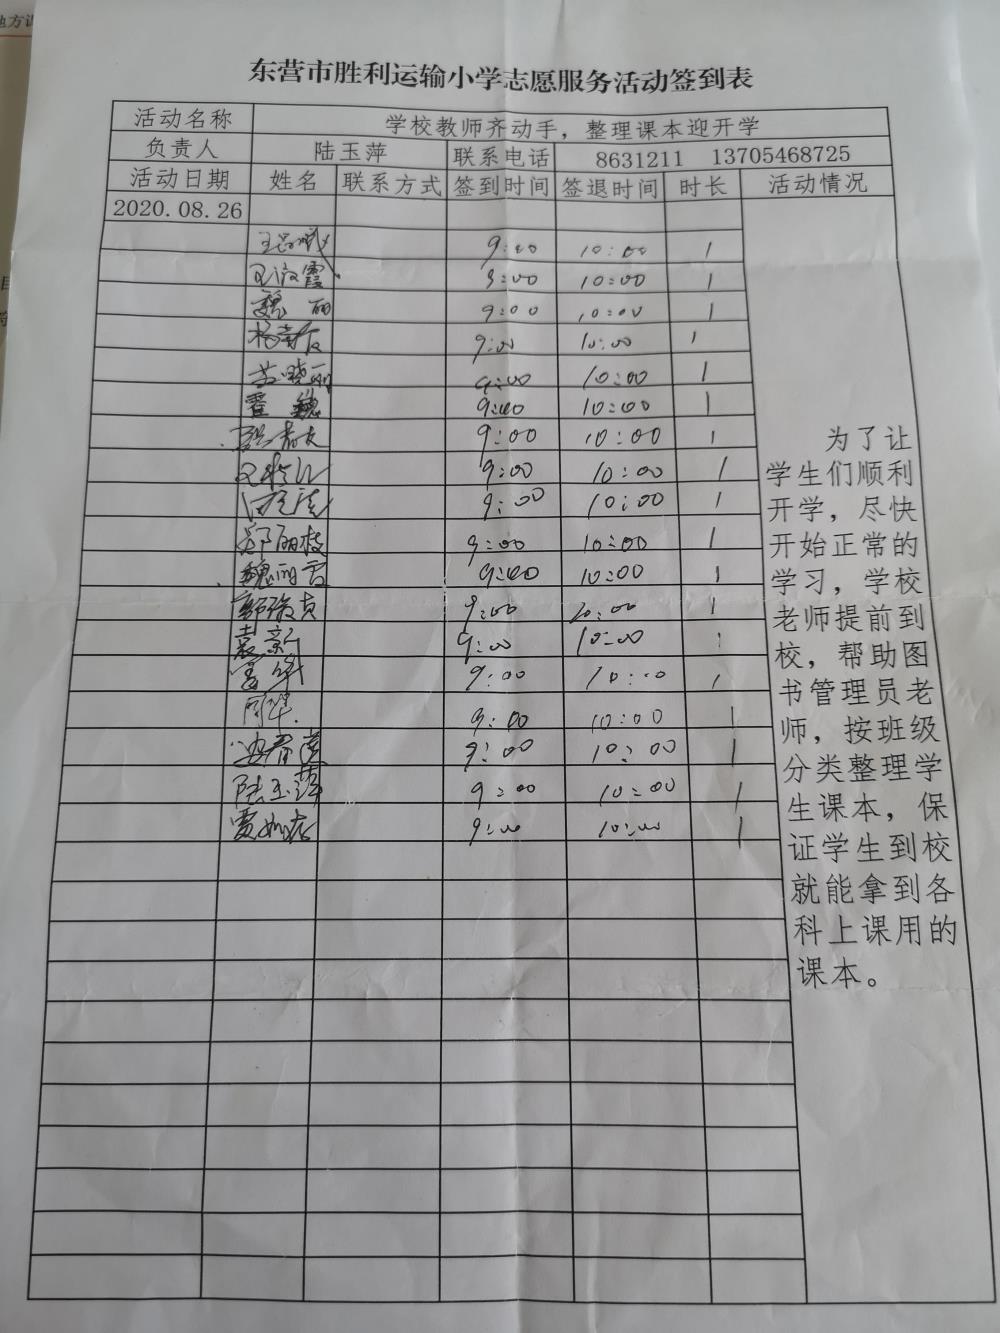 东营市胜利运输小学志愿服务活动签到表
活动名称 学校教师齐动手，整理课本迎开学
负责人 陆玉萍 联系电话 8631211 13705468725
活动日期 姓名 联系方式 签到时间 签退时间 时长 活动情况
2020.08.26
9:00 10:00 1
霞 9:00 10:00 1
魏丽 9:00 10:00 1
杨 9:00 10:00 1
苏晓丽 9:00 10:00 1
霍魏 9:00 10:00 1
9:00 10:00 1
9:00 10:00 1
9:00 10:00 1
郑丽枝 9:00 10:00 1
魏丽霞 9:00 10:00 1
郭 9:00 10:00 1
袁新 9:00 10:00 1
9:00 10:00 1
9:00 10:00 1
9:00 10:00 1
陆玉萍 9:00 10:00 1
贾 9:00 10:00 1
为了让
学生们顺利
开学，尽快
开始正常的
学习，学校
老师提前到
校，帮助图
书管理员老
师，按班级
分类整理学
生课本，保
证学生到校
就能拿到各
科上课用的
课本。